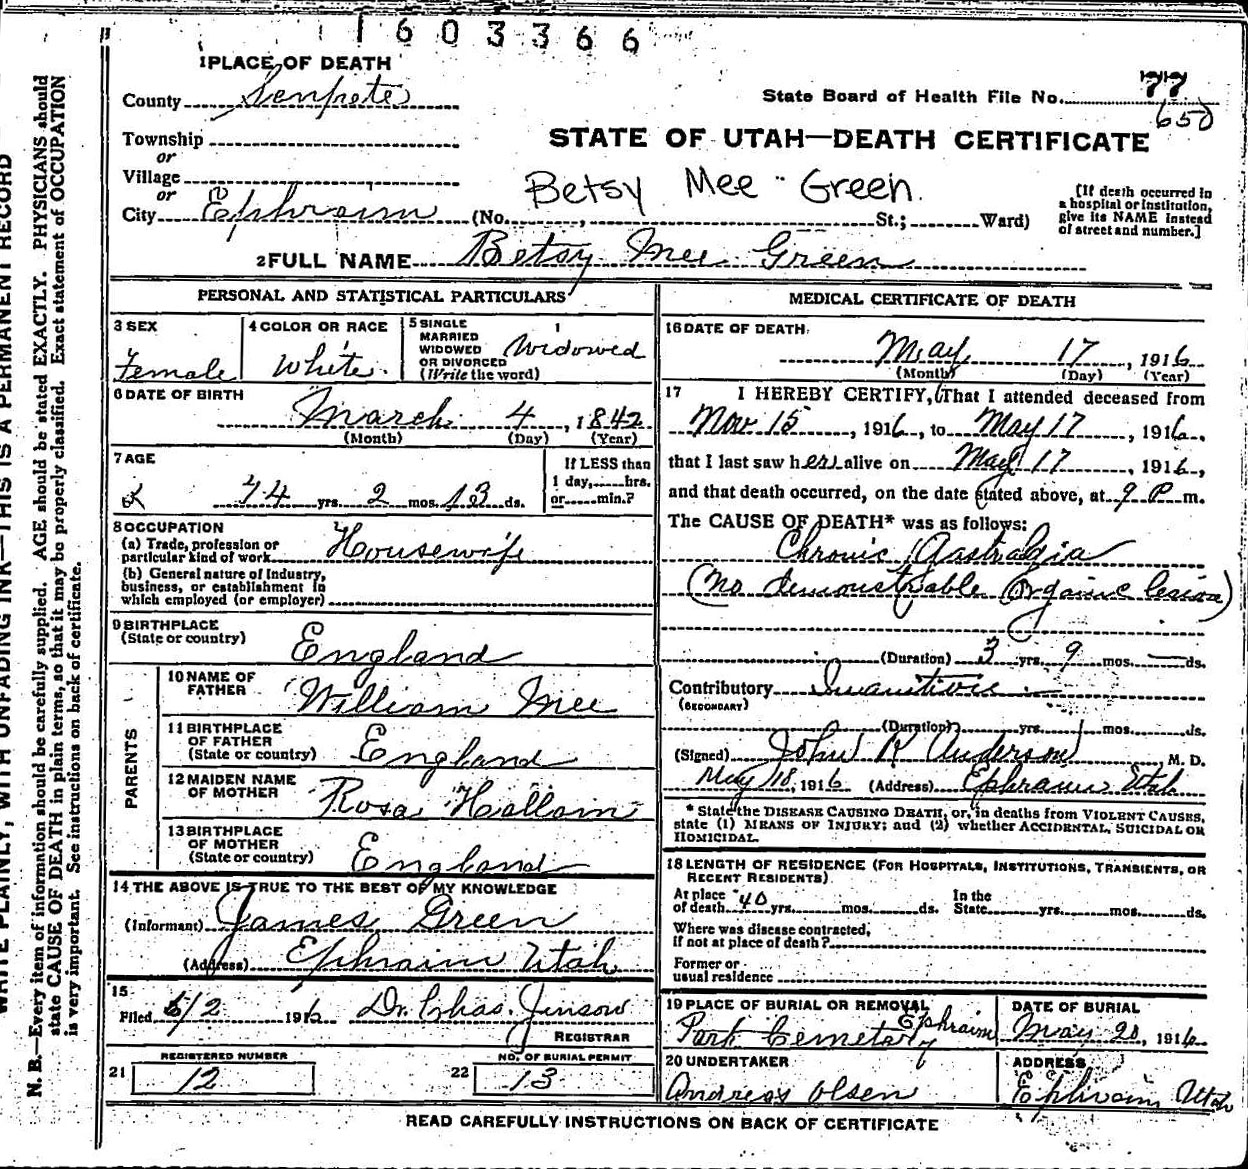 1603366
1 PLACE OF DEATH
County Senpete
State Board of Health File No. 77
650
Township
or
Village
or
City Ephraim (No. , St.; Ward)
STATE OF UTAH—DEATH CERTIFICATE
Betsy Mee Green
[If death occurred in
a hospital or institution,
give its NAME instead
of street and number.]
2 FULL NAME Betsy Mee Green
PERSONAL AND STATISTICAL PARTICULARS
3 SEX
Female
4 COLOR OR RACE
White.
5 SINGLE
MARRIED
WIDOWED
OR DIVORCED
(Write the word)
Widowed
6 DATE OF BIRTH
March 4, 1842
(Month) (Day) (Year)
7 AGE
74 yrs. 2 mos. 13 ds.
If LESS than
1 day, hrs.
or min.?
8 OCCUPATION
(a) Trade, profession or
particular kind of work Housewife
(b) General nature of industry,
business, or establishment in
which employed (or employer)
9 BIRTHPLACE
(State or country)
England
PARENTS
10 NAME OF
FATHER William Mee
11 BIRTHPLACE
OF FATHER
(State or country) England
12 MAIDEN NAME
OF MOTHER Rosa Hallam
13 BIRTHPLACE
OF MOTHER
(State or country) England
14 THE ABOVE IS TRUE TO THE BEST OF MY KNOWLEDGE
(Informant) James Green
(Address) Ephraim Utah
15
Filed 6/2 1916 Dr. Chas. Jenson
REGISTRAR
REGISTERED NUMBER
21 12
NO. OF BURIAL PERMIT
22 13
MEDICAL CERTIFICATE OF DEATH
16 DATE OF DEATH
May 17, 1916
(Month) (Day) (Year)
17 I HEREBY CERTIFY, (That I attended deceased from
Nov 15, 1916, to May 17, 1916,
that I last saw her alive on May 17, 1916,
and that death occurred, on the date stated above, at 9 P m.
The CAUSE OF DEATH* was as follows:
Chronic Gastralgia
(No demonstrable Organic lesion)
(Duration) 3 yrs. 9 mos. — ds.
Contributory Inanition
(SECONDARY)
(Duration) yrs. mos. ds.
(Signed) John R Anderson, M. D.
May 18, 1916 (Address) Ephraim Utah
* State the DISEASE CAUSING DEATH, or, in deaths from VIOLENT CAUSES,
state (1) MEANS OF INJURY; and (2) whether ACCIDENTAL, SUICIDAL OR
HOMICIDAL.
18 LENGTH OF RESIDENCE (FOR HOSPITALS, INSTITUTIONS, TRANSIENTS, OR
RECENT RESIDENTS)
At place
of death 40 yrs. mos. ds.
In the
State yrs. mos. ds.
Where was disease contracted,
if not at place of death?
Former or
usual residence
19 PLACE OF BURIAL OR REMOVAL
Park Cemetary Ephraim
DATE OF BURIAL
May 20, 1916
20 UNDERTAKER
Andreas Olsen
ADDRESS
Ephraim Utah
READ CAREFULLY INSTRUCTIONS ON BACK OF CERTIFICATE
WRITE PLAINLY, WITH UNFADING INK—THIS IS A PERMANENT RECORD
N. B.—Every item of information should be carefully supplied. AGE should be stated EXACTLY. PHYSICIANS should
state CAUSE OF DEATH in plain terms, so that it may be properly classified. Exact statement of OCCUPATION
is very important. See instructions on back of certificate.